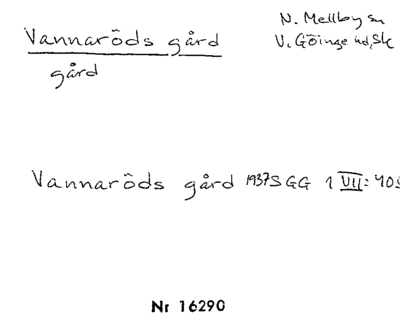 Vannaröds gård
gård
N. Mellby sn
V. Göinge hd, Sk
Vannaröds gård 1937 SGG 1 VII: 405
Nr 16290